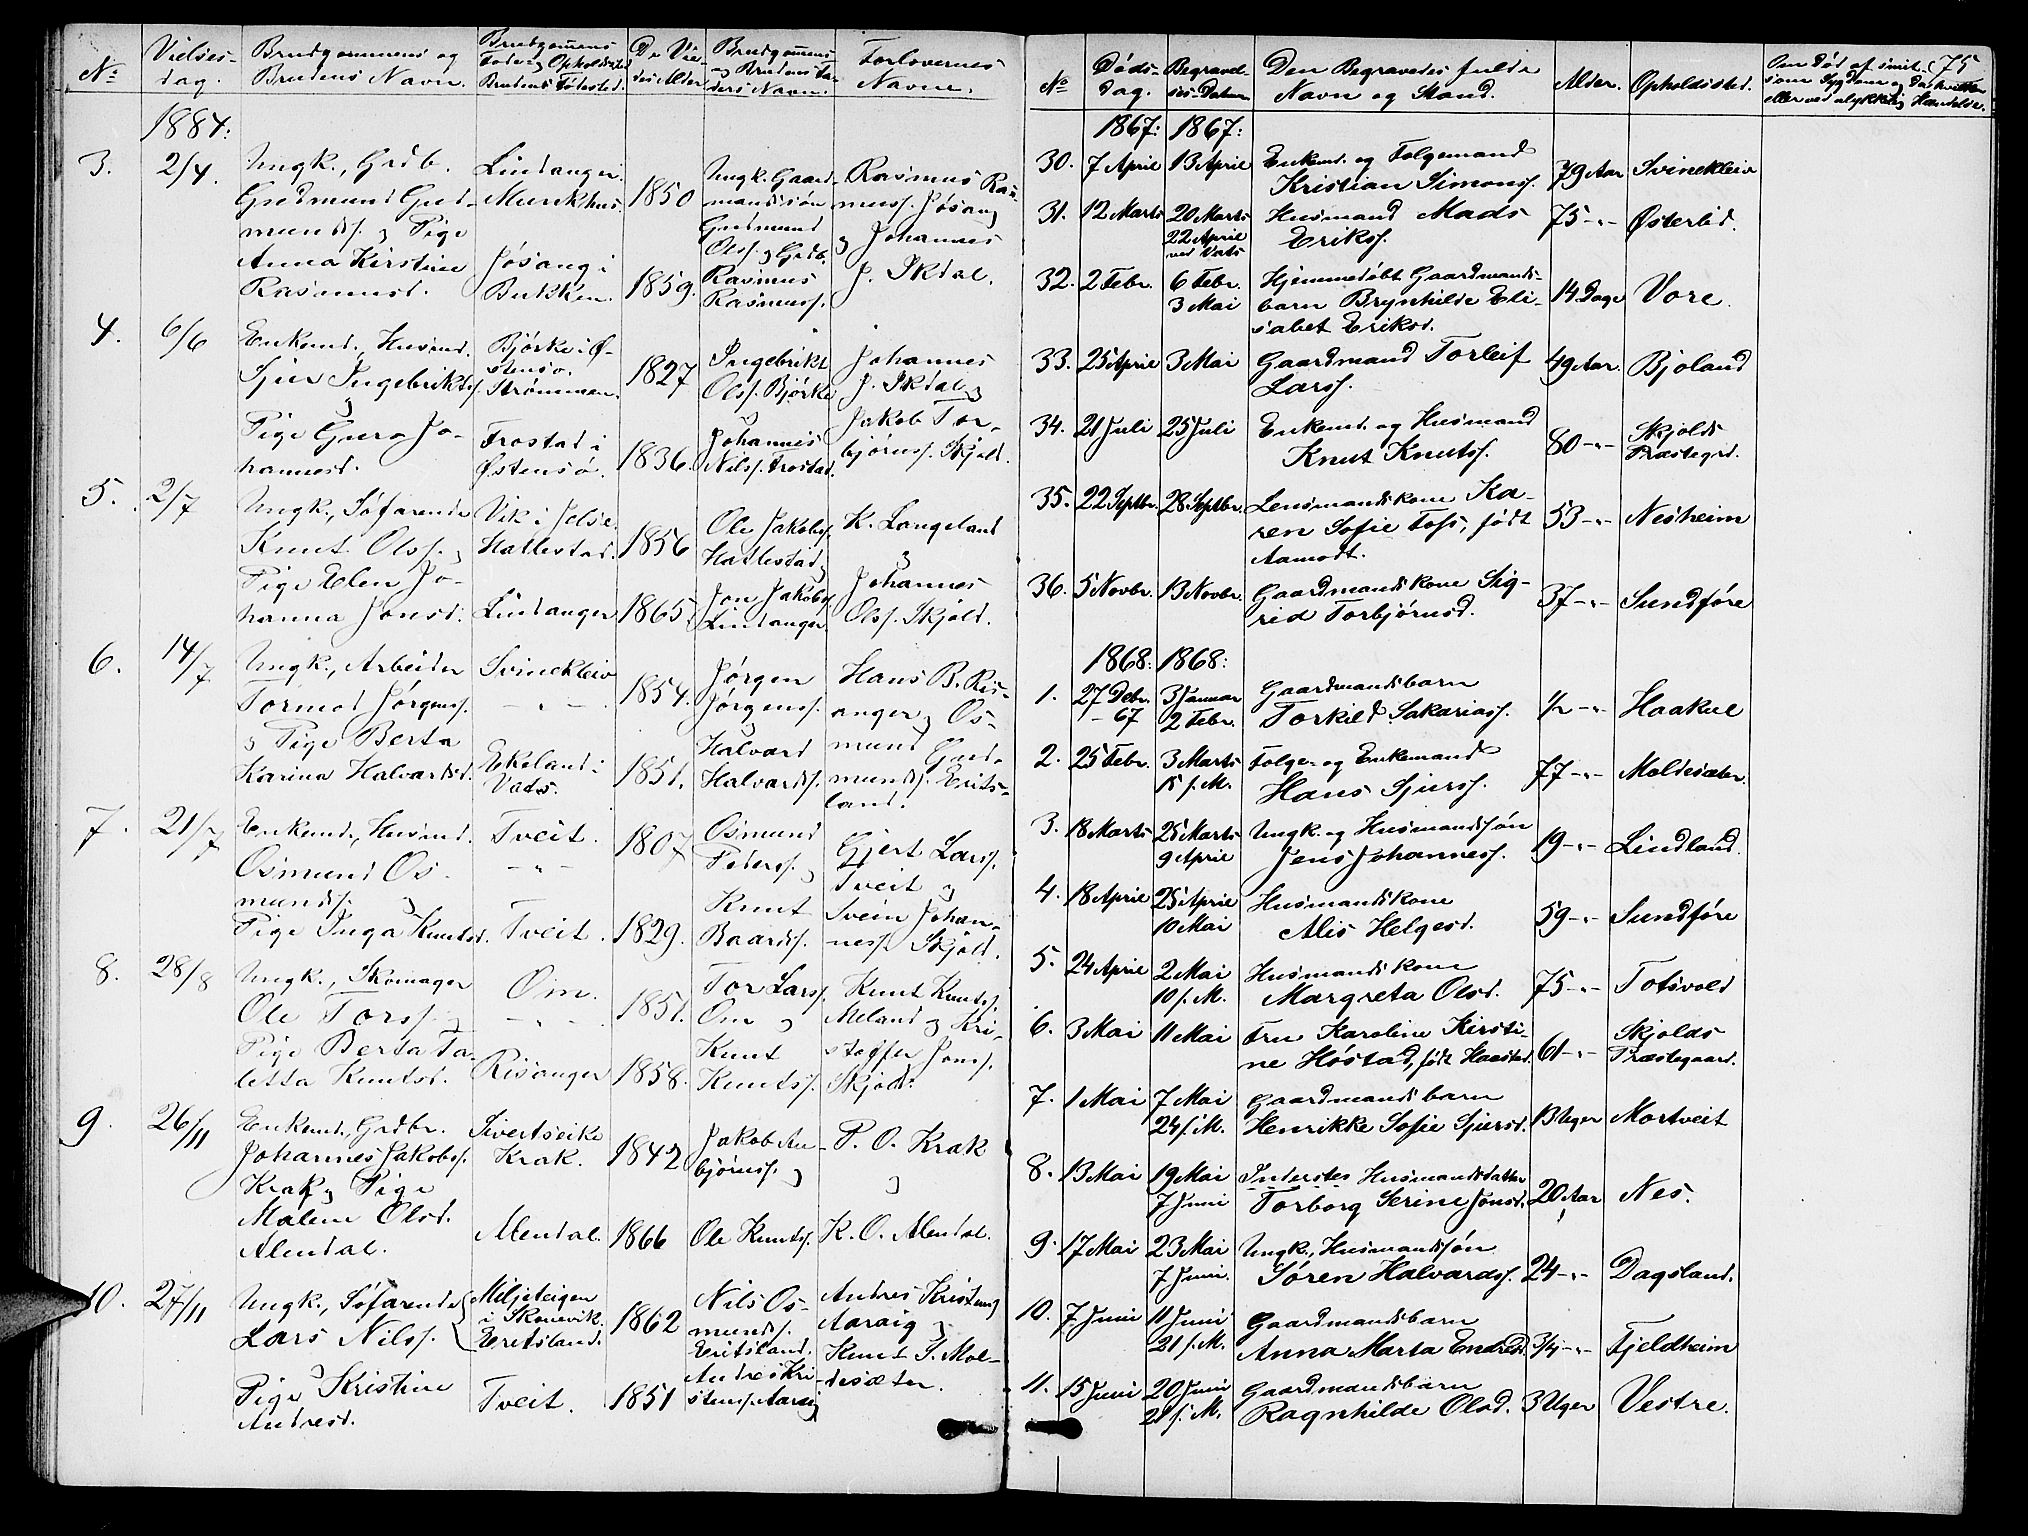 No
Vielses-
dag.
Brudgommens og
Brudens Navn.
Brudgomens
Føde- og Opholdssted
Brudens Fødested.
De Vie-
des Alder
Brudgomens
og Brudens Fa-
ders Navn.
Forlovernes
Navne.
1884:
3.
2/4
Ungk., Grdb.
Gudmund Gud-
munds. og Pige
Anna Kirstine
Rasmusd.
Lindanger.
Munkhus.
Jøsang i
Bukken.
1850
1859.
Ungk. Gaard-
mandssøn
Gudmund
Ols. og Grdb.
Rasmus
Rasmuss.
Rasmus Ras-
muss. Jøsang
og Johannes
J. Skdal.
4.
6/6
Enkemd. Husmd.
Sjur Ingebrikts.
og
Pige Guro Jo-
hannesd.
Bjørke i Ø-
stensø.
Strømmen.
Frostad i
Østensø.
1827
1836.
Ingebrikt
Ols. Bjørke
og
Johannes
Nilss. Frostad.
Johannes
J. Skdal og
Jakob Tor-
bjørns. Skjold.
5.
2/7
Ungk., Søfarende
Knut Ols. og
Pige Elen Jo-
hanna Jonsd.
Vik i Jelse.
Hallestad.
Lindanger
1856
1865.
Ole Jakobs.
Hallestad og
Jon Jakobs.
Lindanger.
K. Langeland
og
Johannes
Ols. Skjold.
6.
14/7
Ungk., Arbeider
Tormod Jørgens.
og Pige Berta
Karina Halvardsd.
Svinekleiv
- " -
Ekeland i
Vats.
1854.
1851.
Jørgen
Jørgens.
Halvard
Halvards.
Hans B. Ris-
anger og Os-
mund Gud-
munds. Erits-
land.
7.
21/7
Enkemd., Husmd.
Osmund Os-
munds. og
Pige Inga Knutsd.
Tveit.
- " -
Tveit.
1807
1829.
Osmund
Peders. og
Knut
Baards.
Gjert Lars.
Tveit og
Svein Johan-
nes. Skjold.
8.
28/8
Ungk., Skomager
Ole Tors. og
Pige Berta Ta-
letta Knutsd.
Øin.
- " -
Risanger
1851.
1858.
Tor Lars.
Øin og
Knut
Knuts.
Knut Knuts.
Meland og Kri-
stoffer Jons.
Skjold.
9.
26/11
Enkemd., Grdbr.
Johannes Jakobs.
Krak og Pige
Malene Olsd.
Alendal.
Sivertseike
Krak.
Alendal.
1842
1866
Jakob An-
bjørns. og
Ole Knuts.
P. O. Krak
og
K. O. Alendal.
10.
27/11
Ungk., Søfarende
Lars Nils.
og
Pige Kristine
Andresd.
Miljeteigen
i Skonevik.
Eritsland.
Tveit.
1862
1851
Nils Os-
munds.
Eritsland.
Andres Kri-
stens. Aaraig
Andres Kristens.
Aaraig og
Knut S. Mol-
desæter.
75
No
Døds-
dag.
Begravel-
ses-Datum
Den Begravedes fulde
Navn og Stand.
Alder.
Opholdssted.
Om Død af smit-
som Sygdom og da hvilken
eller ved ulykkelig Hændelse.
1867: 1867:
30. 7 April 13 April Enkemd. og Folgemand
Kristian Simons. 79 Aar Svinekleiv
31. 12 Marts 20 Marts
22 April
ved Vats
Husmand Mads
Eriks. 75 - " - Østerlid.
32. 2 Febr. 6 Febr.
3 Mai
Hjemmedøbt Gaardmands-
barn Brynhilde Eli-
sabet Eriksd. 14 Dage Vore.
33. 25 April 3 Mai Gaardmand Torleif
Lars. 49 Aar. Bjoland
34. 21 Juli 25 Juli Enkemd. og Husmand
Knut Knuts. 80 - " - Skjolds
Præstegrd.
35. 22 Septbr. 28 Septbr. Lensmandskone Ka-
ren Sofie Foss, født
Aamodt. 53 - " - Nesheim
36. 5 Novbr. 13 Novbr. Gaardmandskone Sig-
rid Torbjørnsd. 37 - " - Sundføre
1868: 1868:
1. 27 Debr.
- 67
3 Januar
2 Febr.
Gaardmandsbarn
Torkild Sakarias. 1/2 - " - Haakul
2. 25 Febr. 3 Marts
15 s. M.
Folge- og Enkemand
Hans Sjurs. 77 - " - Moldesæter.
3. 18 Marts 25 Marts
9 April
Ungk. og Husmandssøn
Jens Johannes. 19 - " - Lindland.
4. 18 April 25 April
10 Mai
Husmandskone
Alis Helgesd. 59 - " - Sundføre
5. 24 April 2 Mai
10 s. M.
Husmandskone
Margreta Olsd. 75 - " - Totsvold
6. 3 Mai 11 Mai Fru Karoline Kirsti-
ne Høstad, født Haasted. 61 - " - Skjolds
Præstegaard.
7. 1 Mai 7 Mai
24 s. M.
Gaardmandsbarn
Henrikke Sofie Sjursd. 13 Uger Mortveit
8. 13 Mai 19 Mai
7 Juni
Inderstes Husmandsdatter
Torborg Serine Jonsd. 20 Aar Nes.
9. 17 Mai 23 Mai
7 Juni.
Ungk., Husmandssøn
Søren Halvards. 24 - " - Dagsland.
10. 7 Juni 11 Juni
21 s. M.
Gaardmandsbarn
Anna Marta Endresd. 3/4 - " - Fjeldheim
11. 15 Juni 20 Juni
21 s. M.
Gaardmandsbarn
Ragnhilde Olsd. 3 Uger Vestre.